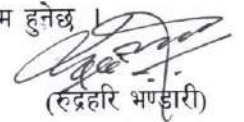 म हुनेछ ।
(रुद्रहरि भण्डारी)